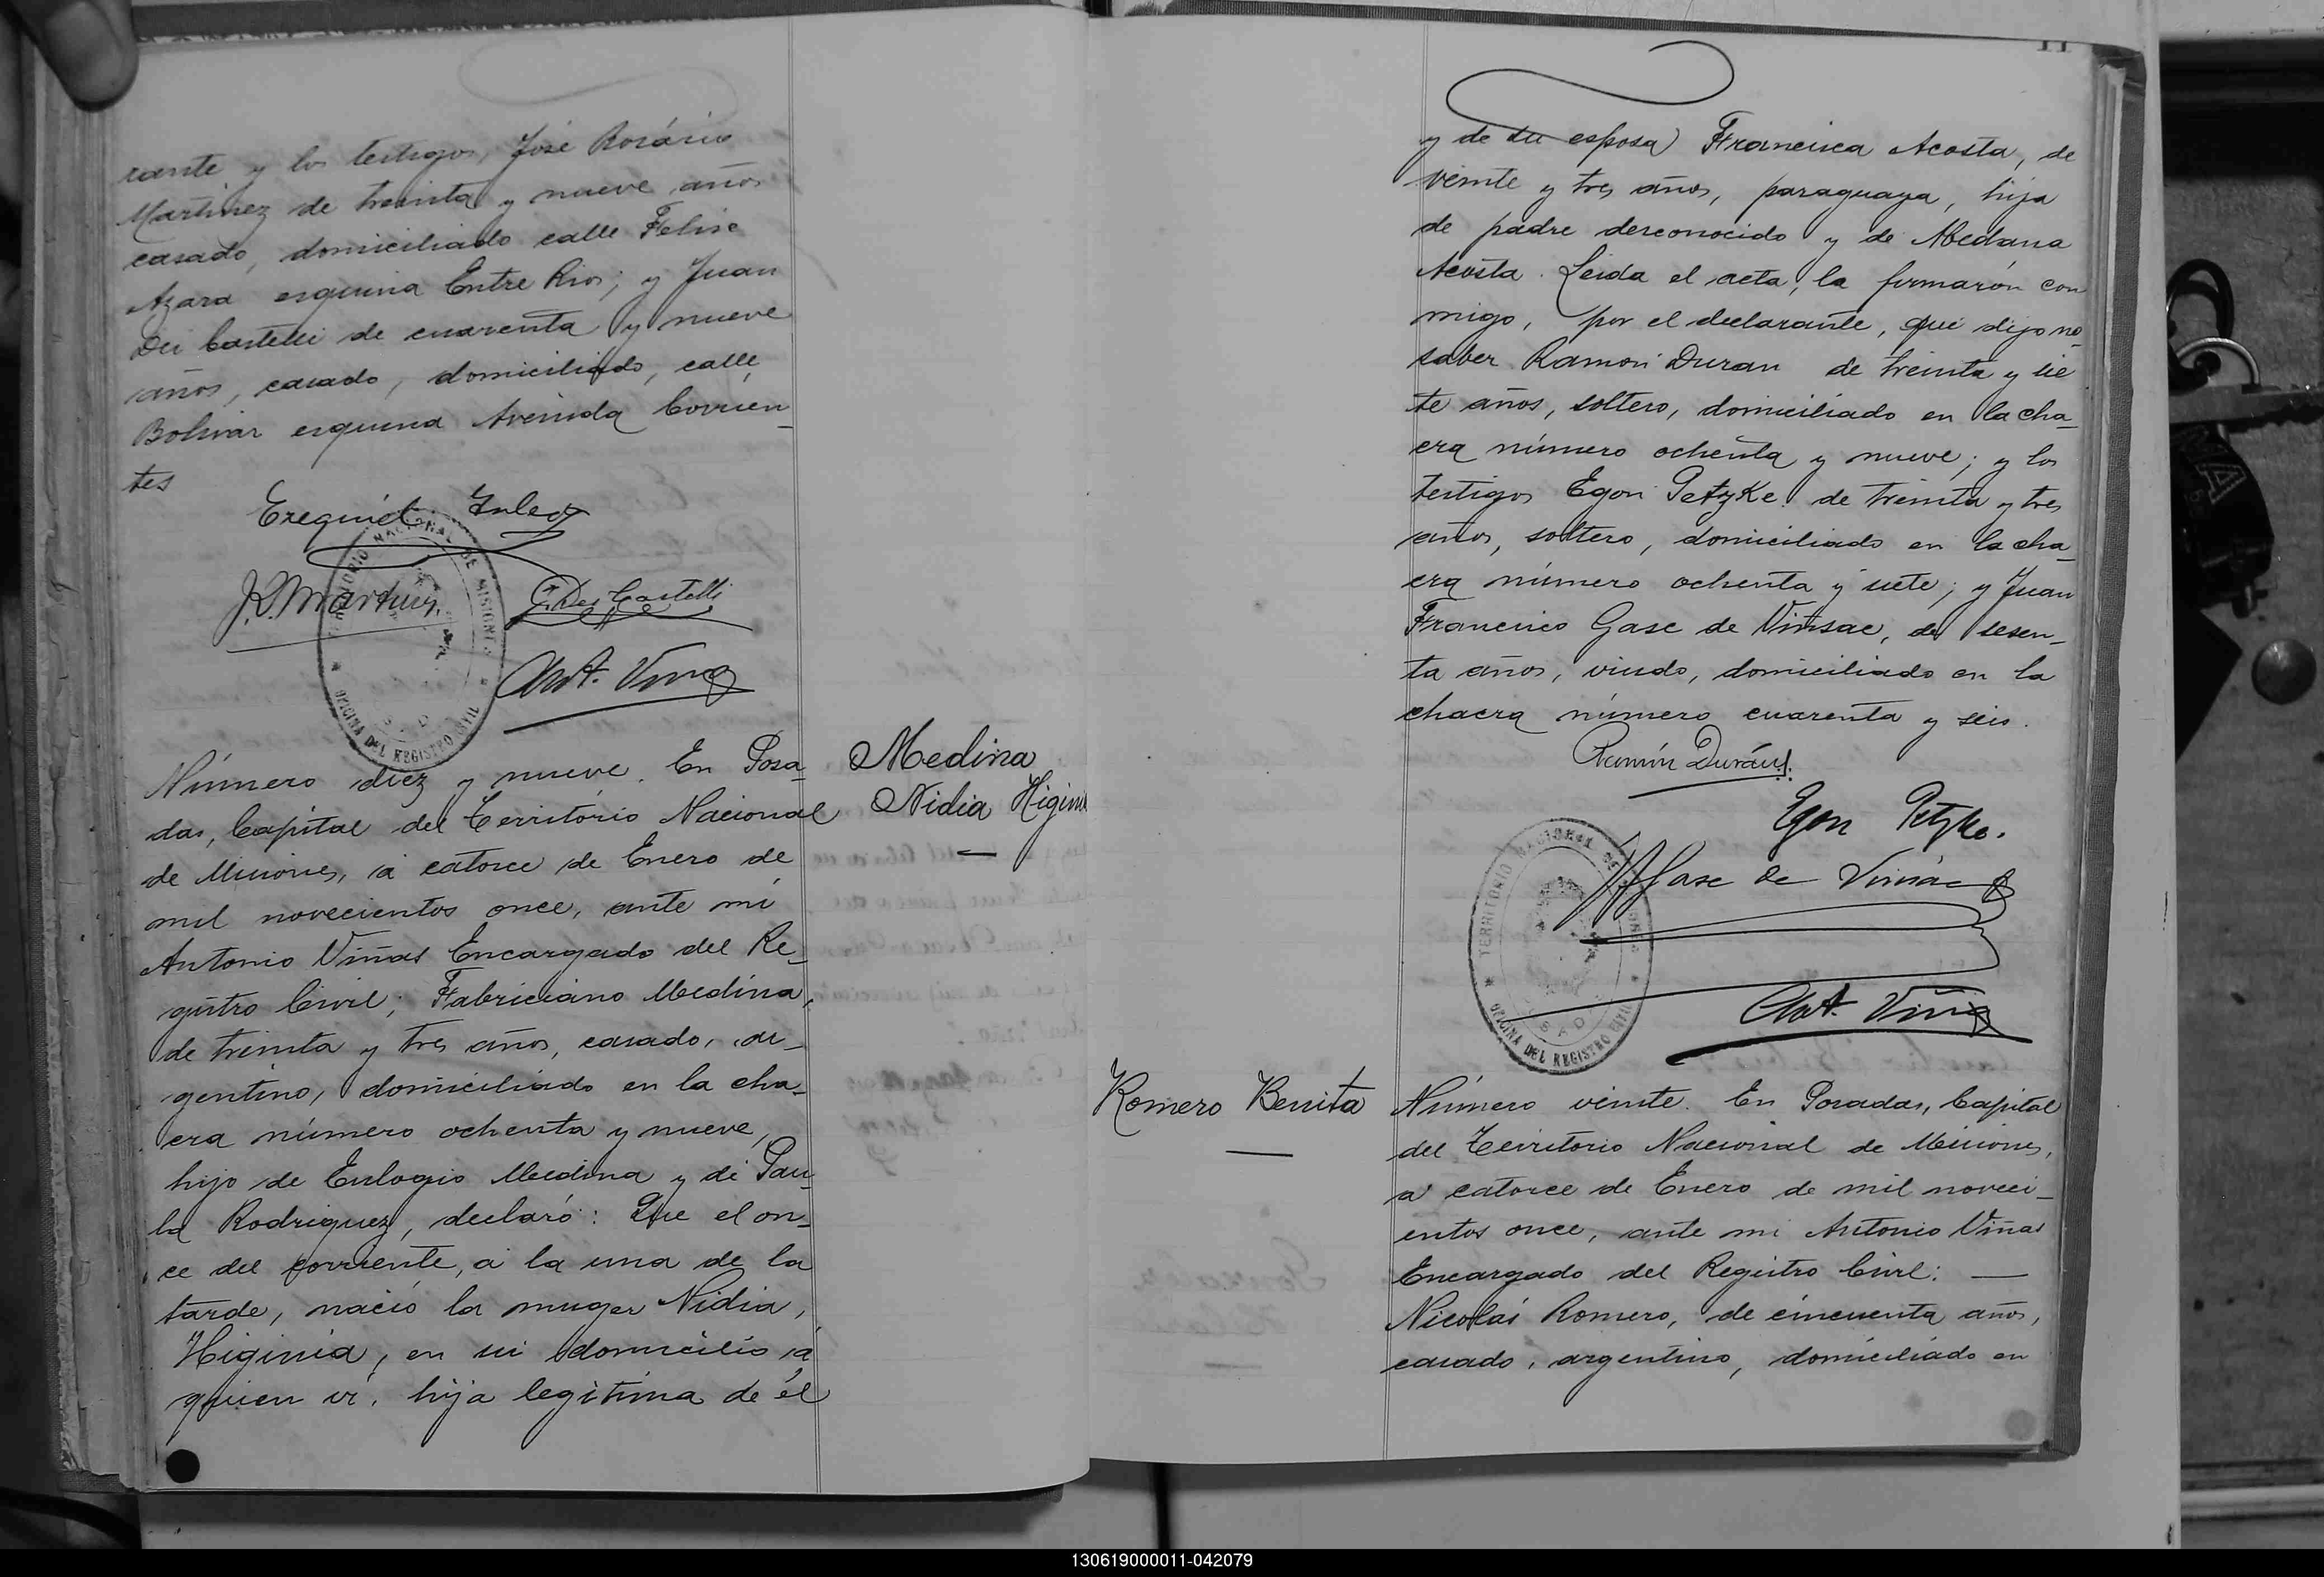 rante y los testigos, José Rosário
Martinez de treinta y nueve años
casado, domiciliado calle Felix
Azara esquina Entre Rios; y Juan
Dei Castelli de cuarenta y nueve
años, casado, domiciliado, calle
Bolivar esquina Avenida Corrien_
tes
Ezequiel
J. R. Martinez
G. Dei Castelli
TERRITORIO NACIONAL DE MISIONES
OFICINA DEL REGISTRO CIVIL
Ant. Viñas
Medina
Nidia Higinia
Número diez y nueve. En Posa_
das, Capital del Território Nacional
de Misiones, á catorce de Enero de
mil novecientos once, ante mi
Antonio Viñas Encargado del Re_
gistro Civil; Fabriciano Medina,
de treinta y tres años, casado, ar_
gentino, domiciliado en la cha_
cra número ochenta y nueve,
hijo de Eulogio Medina y de Pau_
la Rodriguez, declaró: Que el on_
ce del corriente, á la una de la
tarde, nació la muger Nidia,
Higinia, en su domicilio á
quien ví, hija legítima de él
11
y de su esposa Francisca Acosta, de
veinte y tres años, paraguaya, hija
de padre desconocido y de Medana
Acosta. Leida el acta, la firmarón con
migo, por el declarante, que dijo no_
saber Ramon Duran de treinta y sie
te años, soltero, domiciliado en la cha_
cra número ochenta y nueve; y los
testigos Egon Petzke de treinta y tres
años, soltero, domiciliado en la cha_
cra número ochenta y siete; y Juan
Francisco Gasc de Vinsac, de sesen_
ta años, viudo, domiciliado en la
chacra número cuarenta y seis.
Ramón Durán
Egon Petzke.
Gasc de Vinsac
TERRITORIO NACIONAL DE MISIONES
OFICINA DEL REGISTRO CIVIL
Ant. Viñas
Romero Benita
Número veinte. En Posadas, Capital
del Territorio Nacional de Misiones,
a catorce de Enero de mil noveci_
entos once, ante mi Antonio Viñas
Encargado del Registro Civil: —
Nicolás Romero, de cincuenta años,
casado, argentino, domiciliado en
130619000011-042079